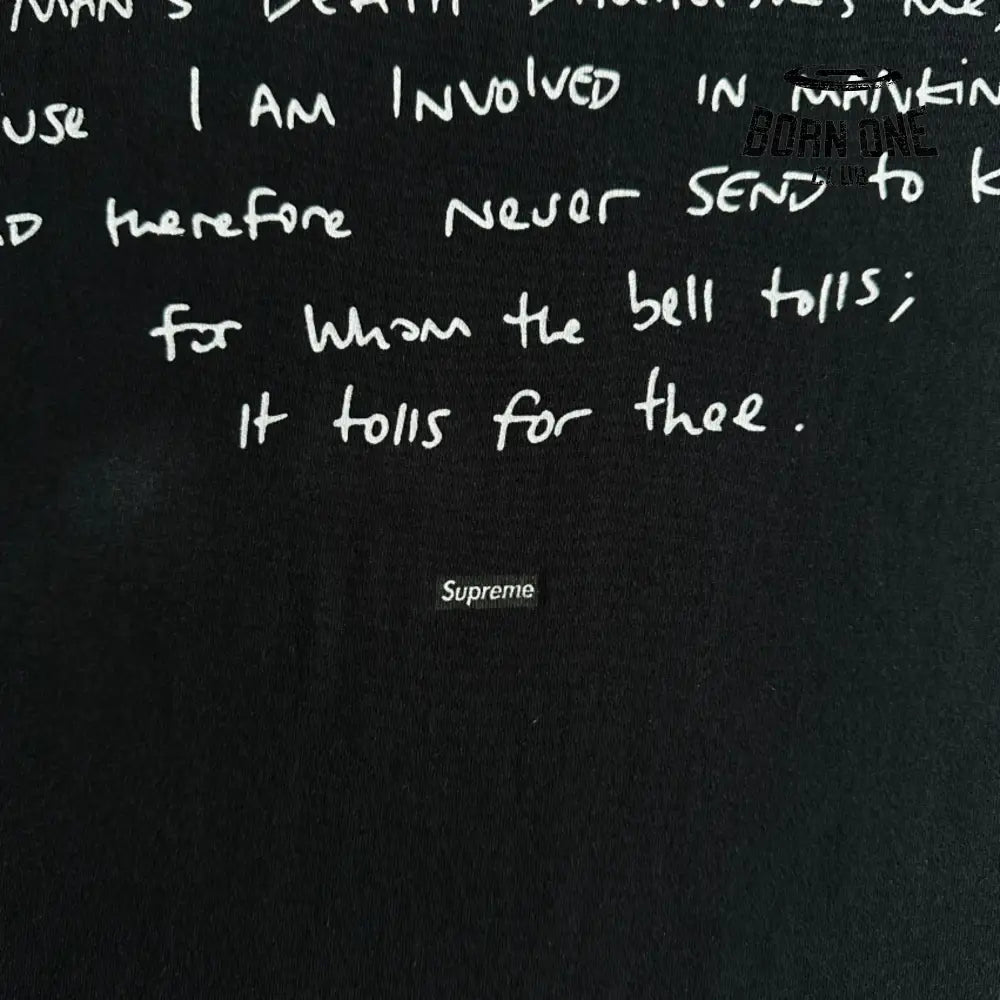 MAN'S DEATH Diminishes me,
use I AM INVOLVED IN MANKIN
D therefore Never SEND to k
for whom the bell tolls;
It tolls for thee.
Supreme
BORN ONE
CLUB